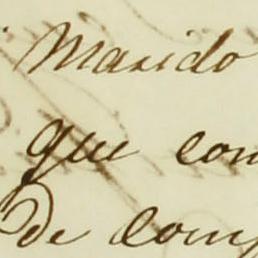 Marido
que con
de com